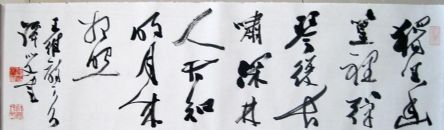 獨坐幽
篁裡弹
琴復长
嘯深林
人不知
明月来
相照
王維詩一首